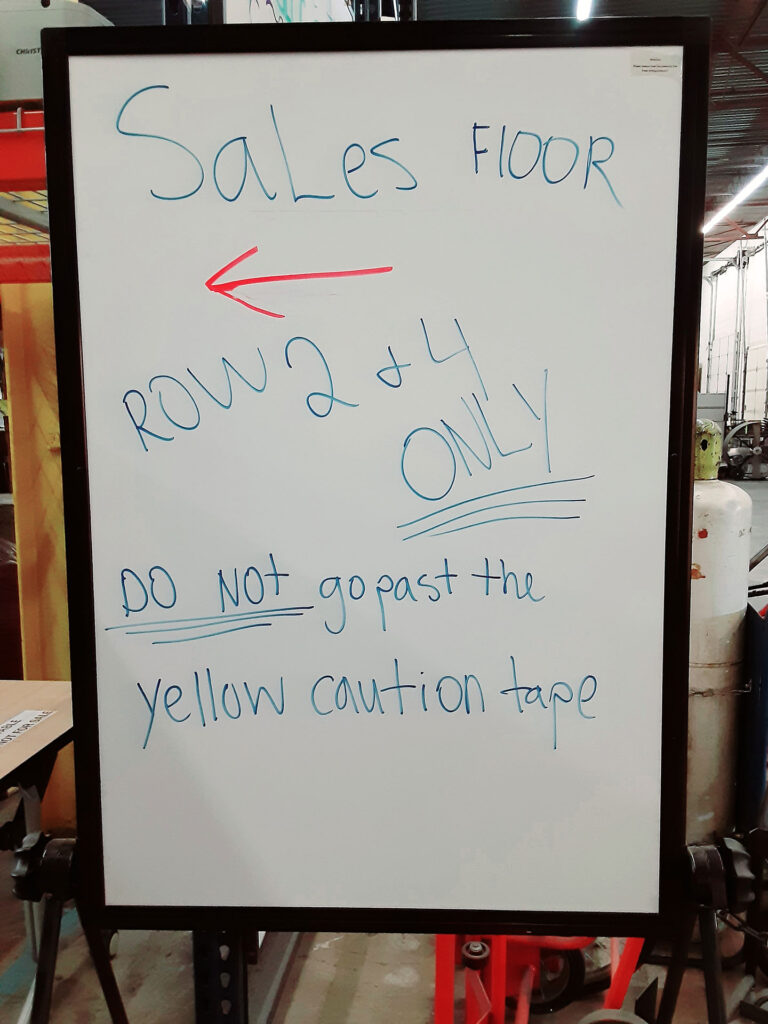 SaLes FlOOR
ROW 2 & 4
ONLY
DO NOt go past the
yellow caution tape
NOT FOR SALE